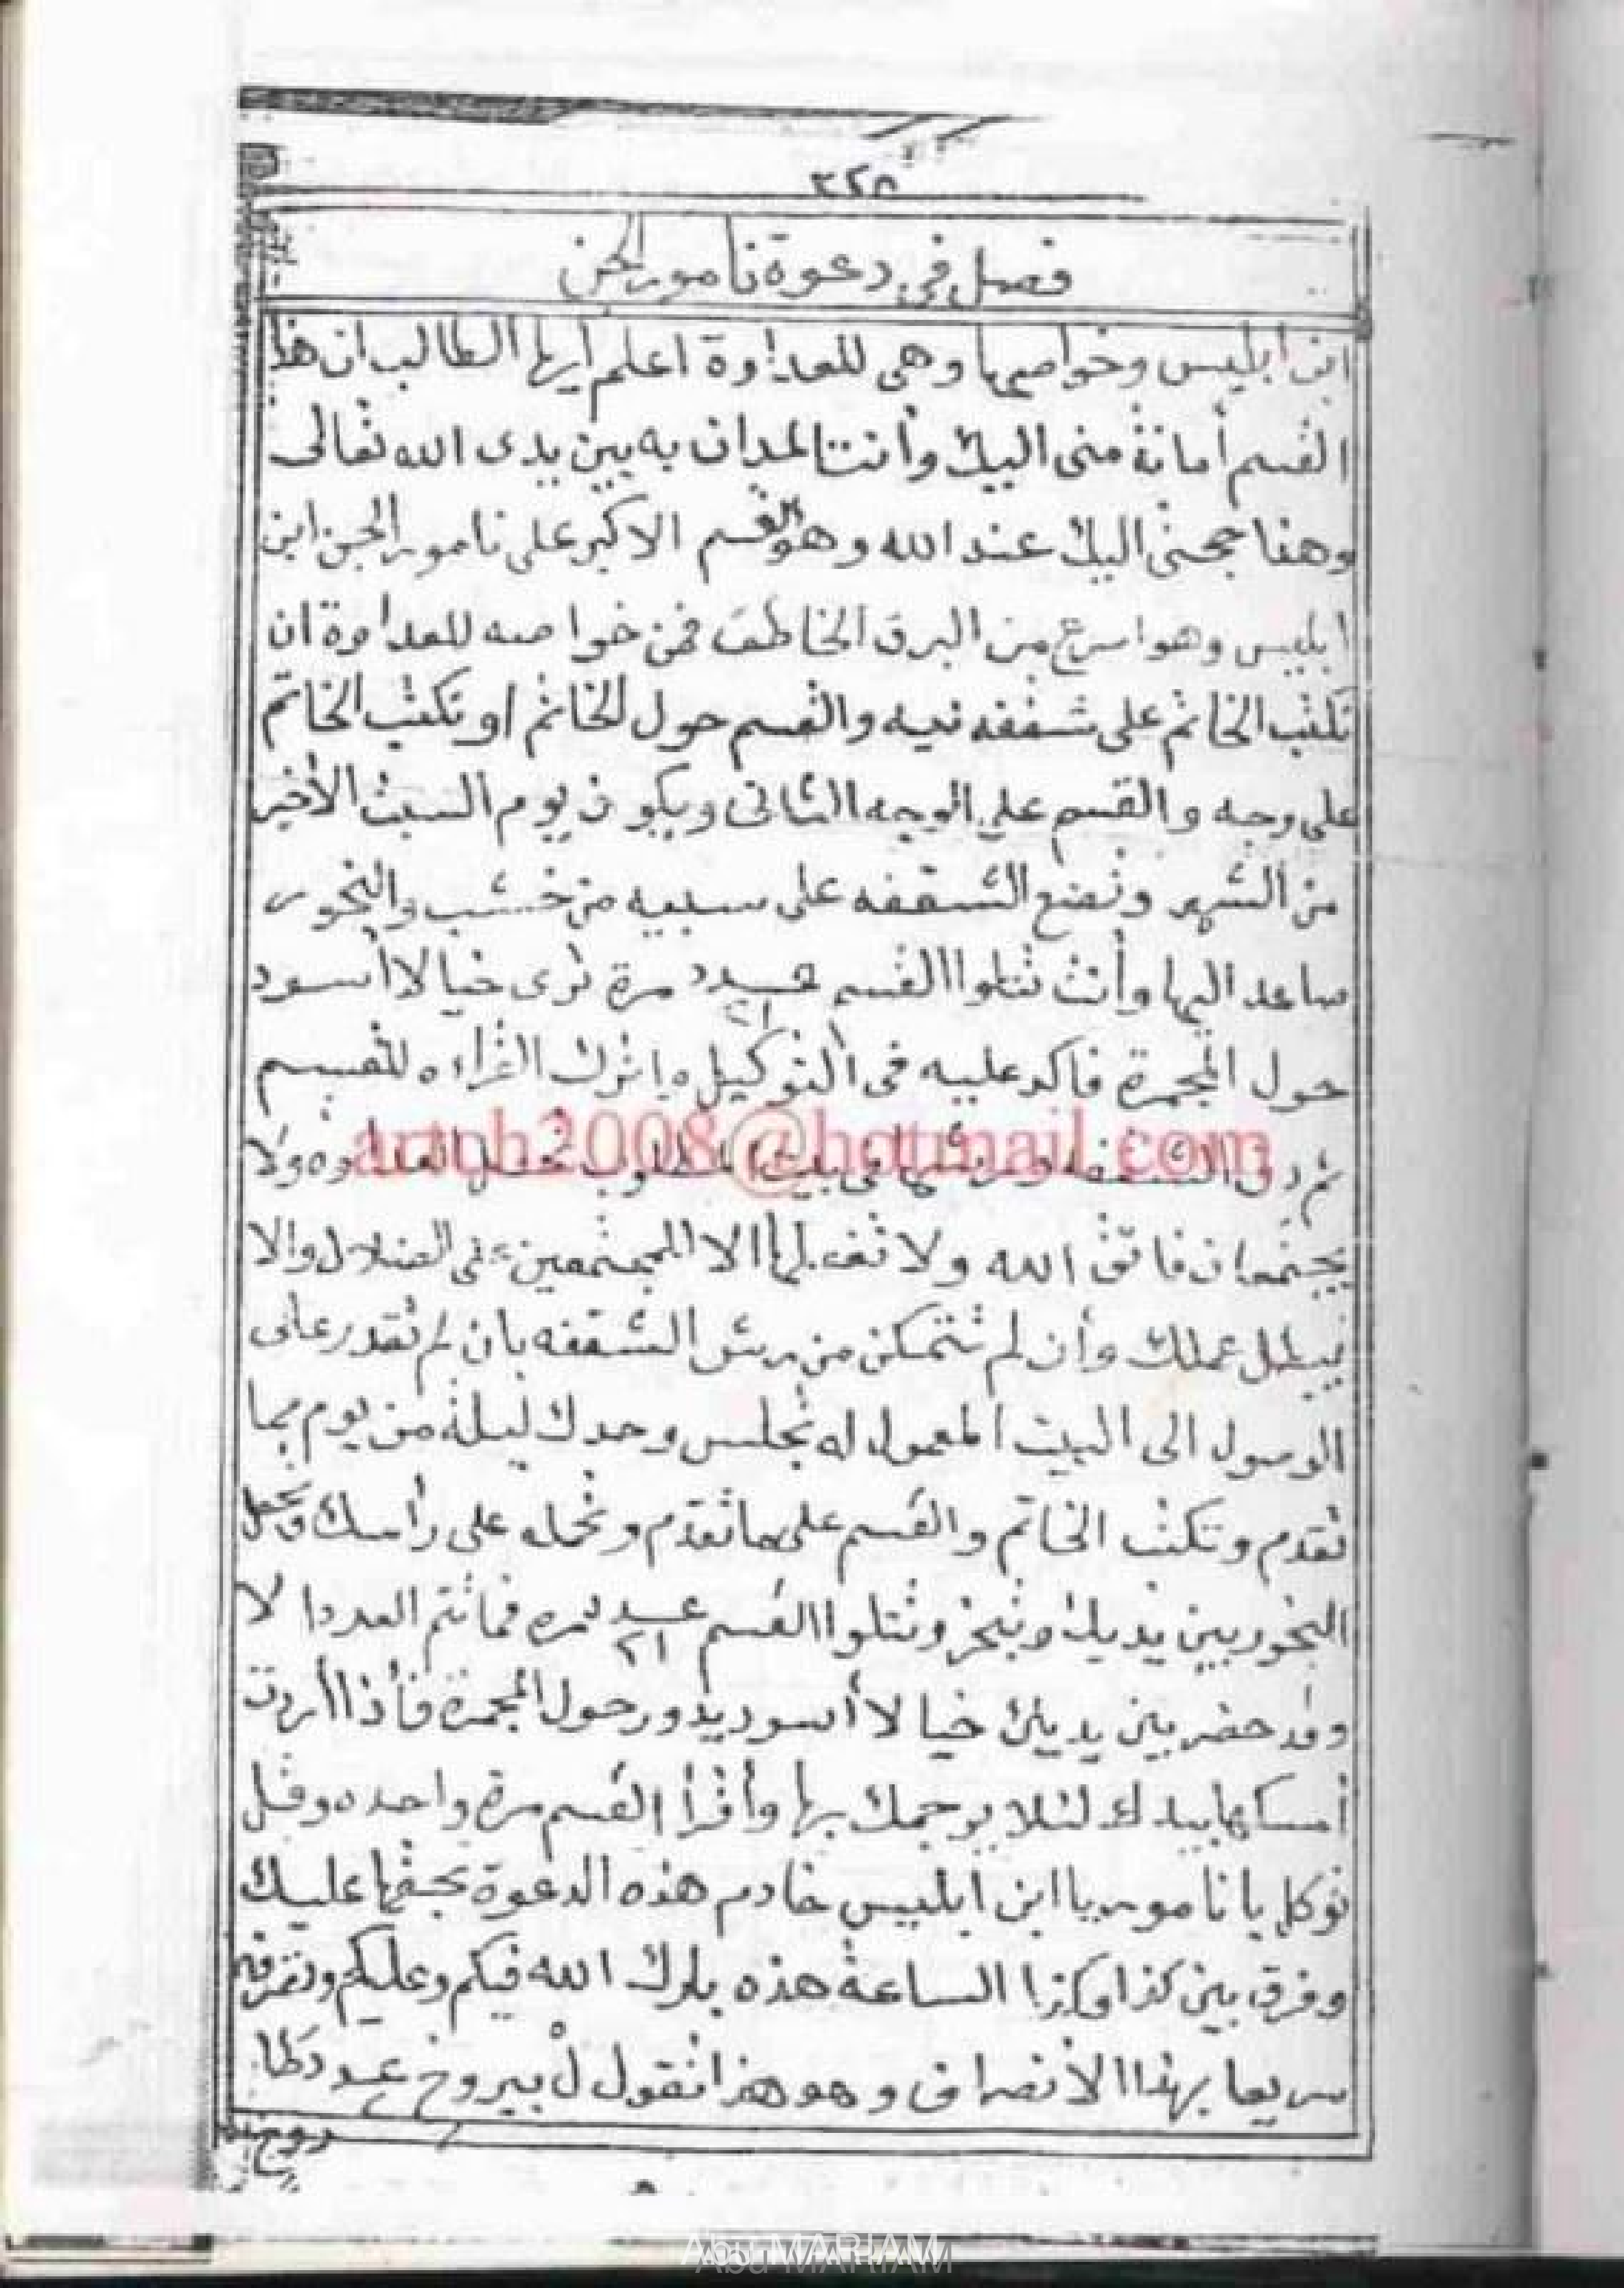 ٣٢٨
فصل في دعوة نامور الجن
ابن ابليس وخواصها وهي للعداوة اعلم ايها الطالب ان هذا
القسم أمانة منى اليك وأنت المدان به بين يدى الله تعالى
وهذا حجتي اليك عند الله وهو القسم الاكبر على نامور الجن ابن
ابليس وهو اسرع من البرق الخاطف فمن خواصه للعداوة ان
تكتب الخاتم على شقفه نيه والقسم حول الخاتم او تكتب الخاتم
على وجه والقسم على الوجه الثانى ويكون يوم السبت الأخير
من الشهر وتضع الشقفه على سيبه من خشب والبخور
صاعد اليها وأنت تتلوا القسم عدد ٢١ مرة ترى خيالا أسود
حول المجمرة فاكد عليه فى التوكيل واترك القراءه للقسم
ثم دق الشقفه ورشها فى بيت المطلوب تحصل العداوه ولا
artch2008@hotmail.com
يجتمعان فاتق الله ولا تفعلها الا للمجتمعين فى الضلال والا
يبطل عملك وأن لم تتمكن من رش الشقفه بان لم تقدر على
الوصول الى البيت المعمول له تجلس وحدك ليلة من يوم بما
تقدم وتكتب الخاتم والقسم على ما تقدم وتحمله على رأسك وتجعل
البخور بين يديك وتبخر وتتلوا القسم عدد ٢١ مره فما تتم العدد الا
وقد حضر بين يديك خيالا أسود يدور حول المجمرة فأذا أردت
أمسكها بيدك لئلا يرجمك بها وأقرأ القسم مرة واحده وقل
توكل يا نامور يا ابن ابليس خادم هذه الدعوة بحقها عليك
وفرق بين كذا وكذا الساعة هذه بارك الله فيكم وعليكم وتصرفه
سريعا بهذا الأنصراف وهو هذا تقول ل بيروخ عدد
Abu MARIAM